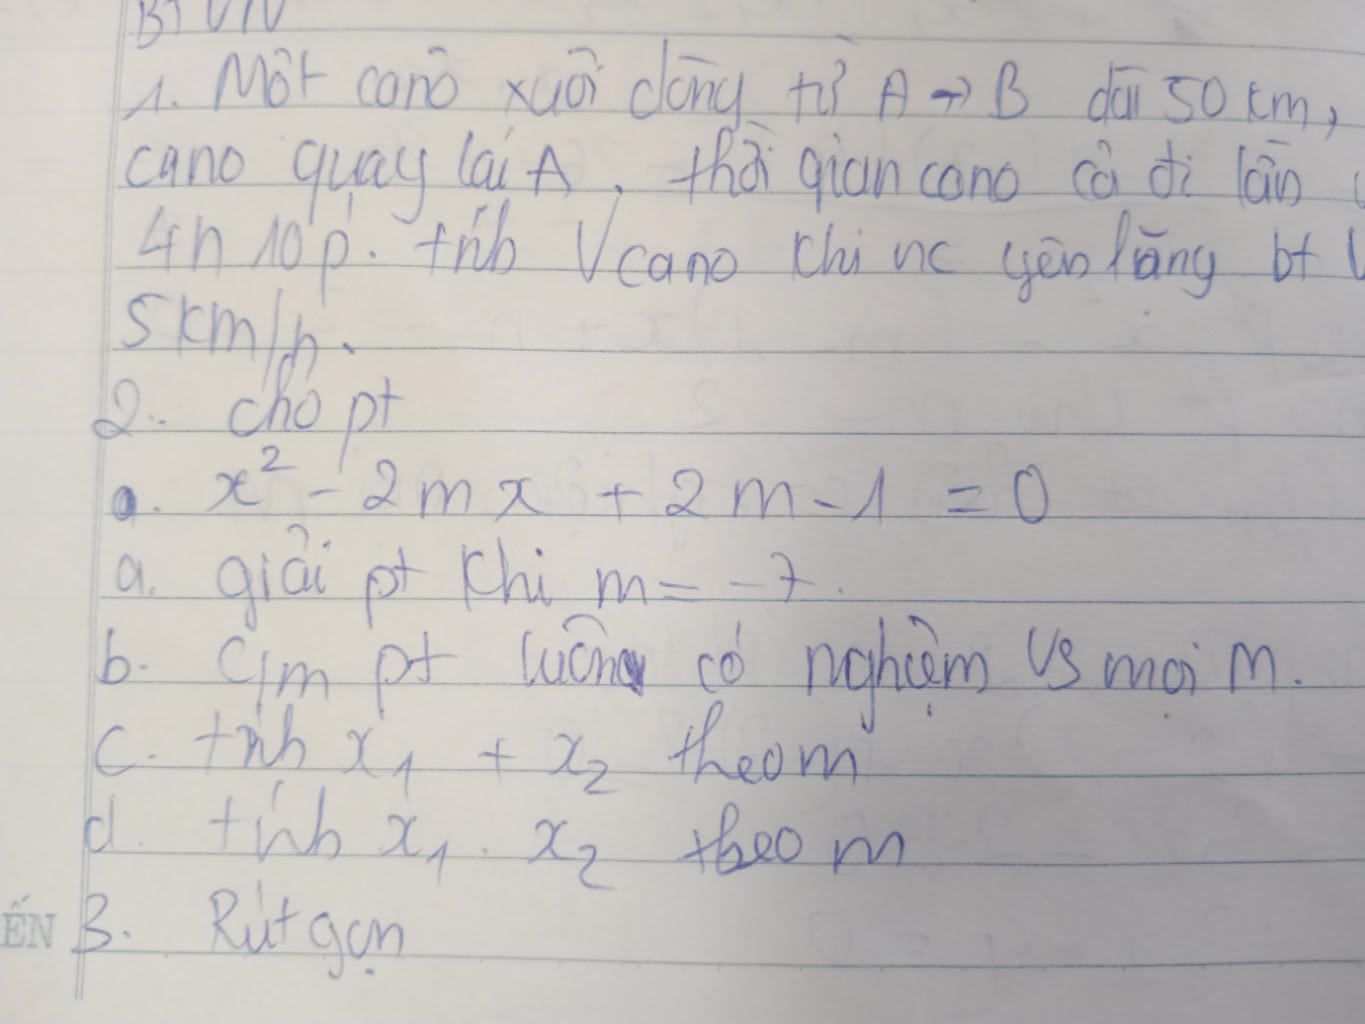 BT VN
1. Một canô xuôi dòng từ A → B dài 50 km,
cano quay lại A, thời gian cano cả đi lẫn
4h 10p. tính Vcano khi nc yên lặng bt V
5 km/h.
2. cho pt
a. x² - 2mx + 2m - 1 = 0
a. giải pt khi m = -7.
b. C/m pt luôn có nghiệm vs mọi m.
c. tính x₁ + x₂ theo m
d. tính x₁ . x₂ theo m
ẾN 3. Rút gọn